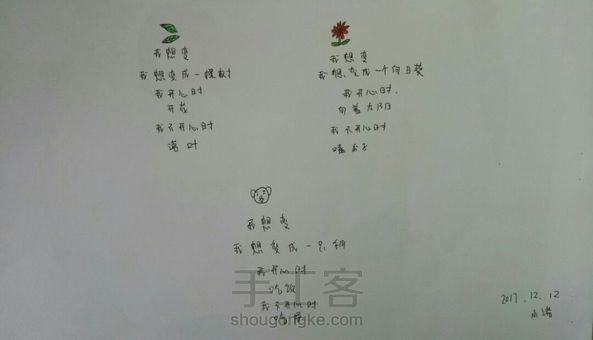 我想变
我想变成一棵树
我开心时
开花
我不开心时
落叶
我想变
我想变成一个向日葵
我开心时.
向着太阳
我不开心时
嗑瓜子
我想变
我想变成一只狗
我开心时
吃饭
我不开心时
手工客
shougongke.com
2017.12.12